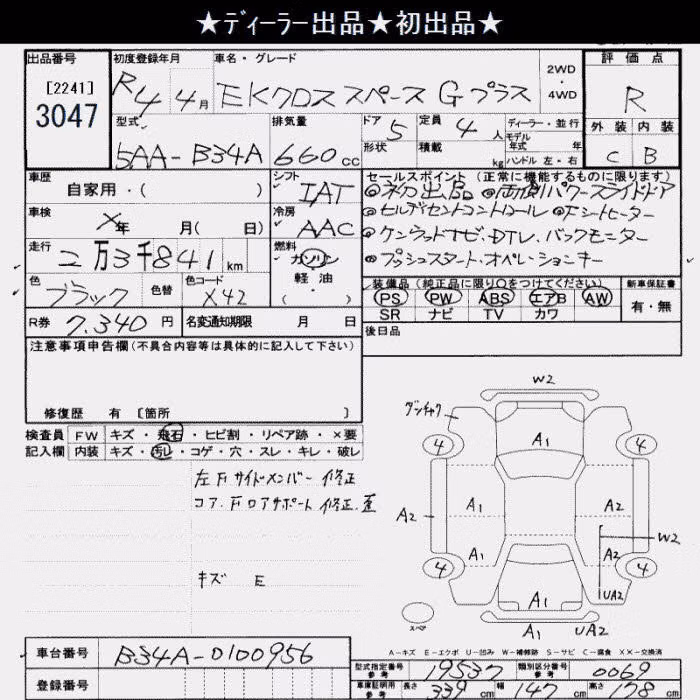 ★ディーラー出品★初出品★
出品番号
[2241]
3047
初度登録年月
R4 4月
車名・グレード
EKクロス スペース G プラス
2WD
・
4WD
評価点
R
外装 内装
C B
型式
5AA-B34A
排気量
660cc
ドア
5
定員
4人
形状
積載
kg
ディーラー・並行
モデル
年式 年
ハンドル 左・右
車歴
自家用・( )
シフト
IAT
冷房
AAC
車検
×年 月( 日)
走行
二万3千841km
燃料
ガソリン
軽油
( )
色
ブラック
色替
色コード
X42
R券 7,340円
名変通知期限 月 日
セールスポイント (正常に機能するものに限ります)
◎初出品 ◎両側パワースライドドア
◎セルデセントコントロール ◎Fシートヒーター
◎ケンウッドナビ.DTV.バックモニター
◎プッシュスタート.オペレーションキー
装備品 (純正品に限り○をつけてください)
PS PW ABS エアB AW
SR ナビ TV カワ
新車保証書
有・無
後日品
注意事項申告欄(不具合内容等は具体的に記入して下さい)
修復歴 有 [箇所 ]
検査員 FW キズ・飛石・ヒビ割・リペア跡・×要
記入欄 内装 キズ・汚レ・コゲ・穴・スレ・キレ・破レ
左Fサイドメンバー 修正
コア.Fロアサポート 修正.歪
キズ E
W2
ダンチャク
A1
4 4
A2 A1 A2
W2
A1 A2
4 4
UA2
A1
スペア
A1 UA2
A-キズ E-エクボ U-凹み W-補修跡 S-サビ C-腐食 XX-交換済
車台番号 B34A-0100956
登録番号
型式指定番号 参考 19537
類別区分番号 参考 0069
車庫証明用 参考 長さ 339cm 幅 147cm 高さ 178cm